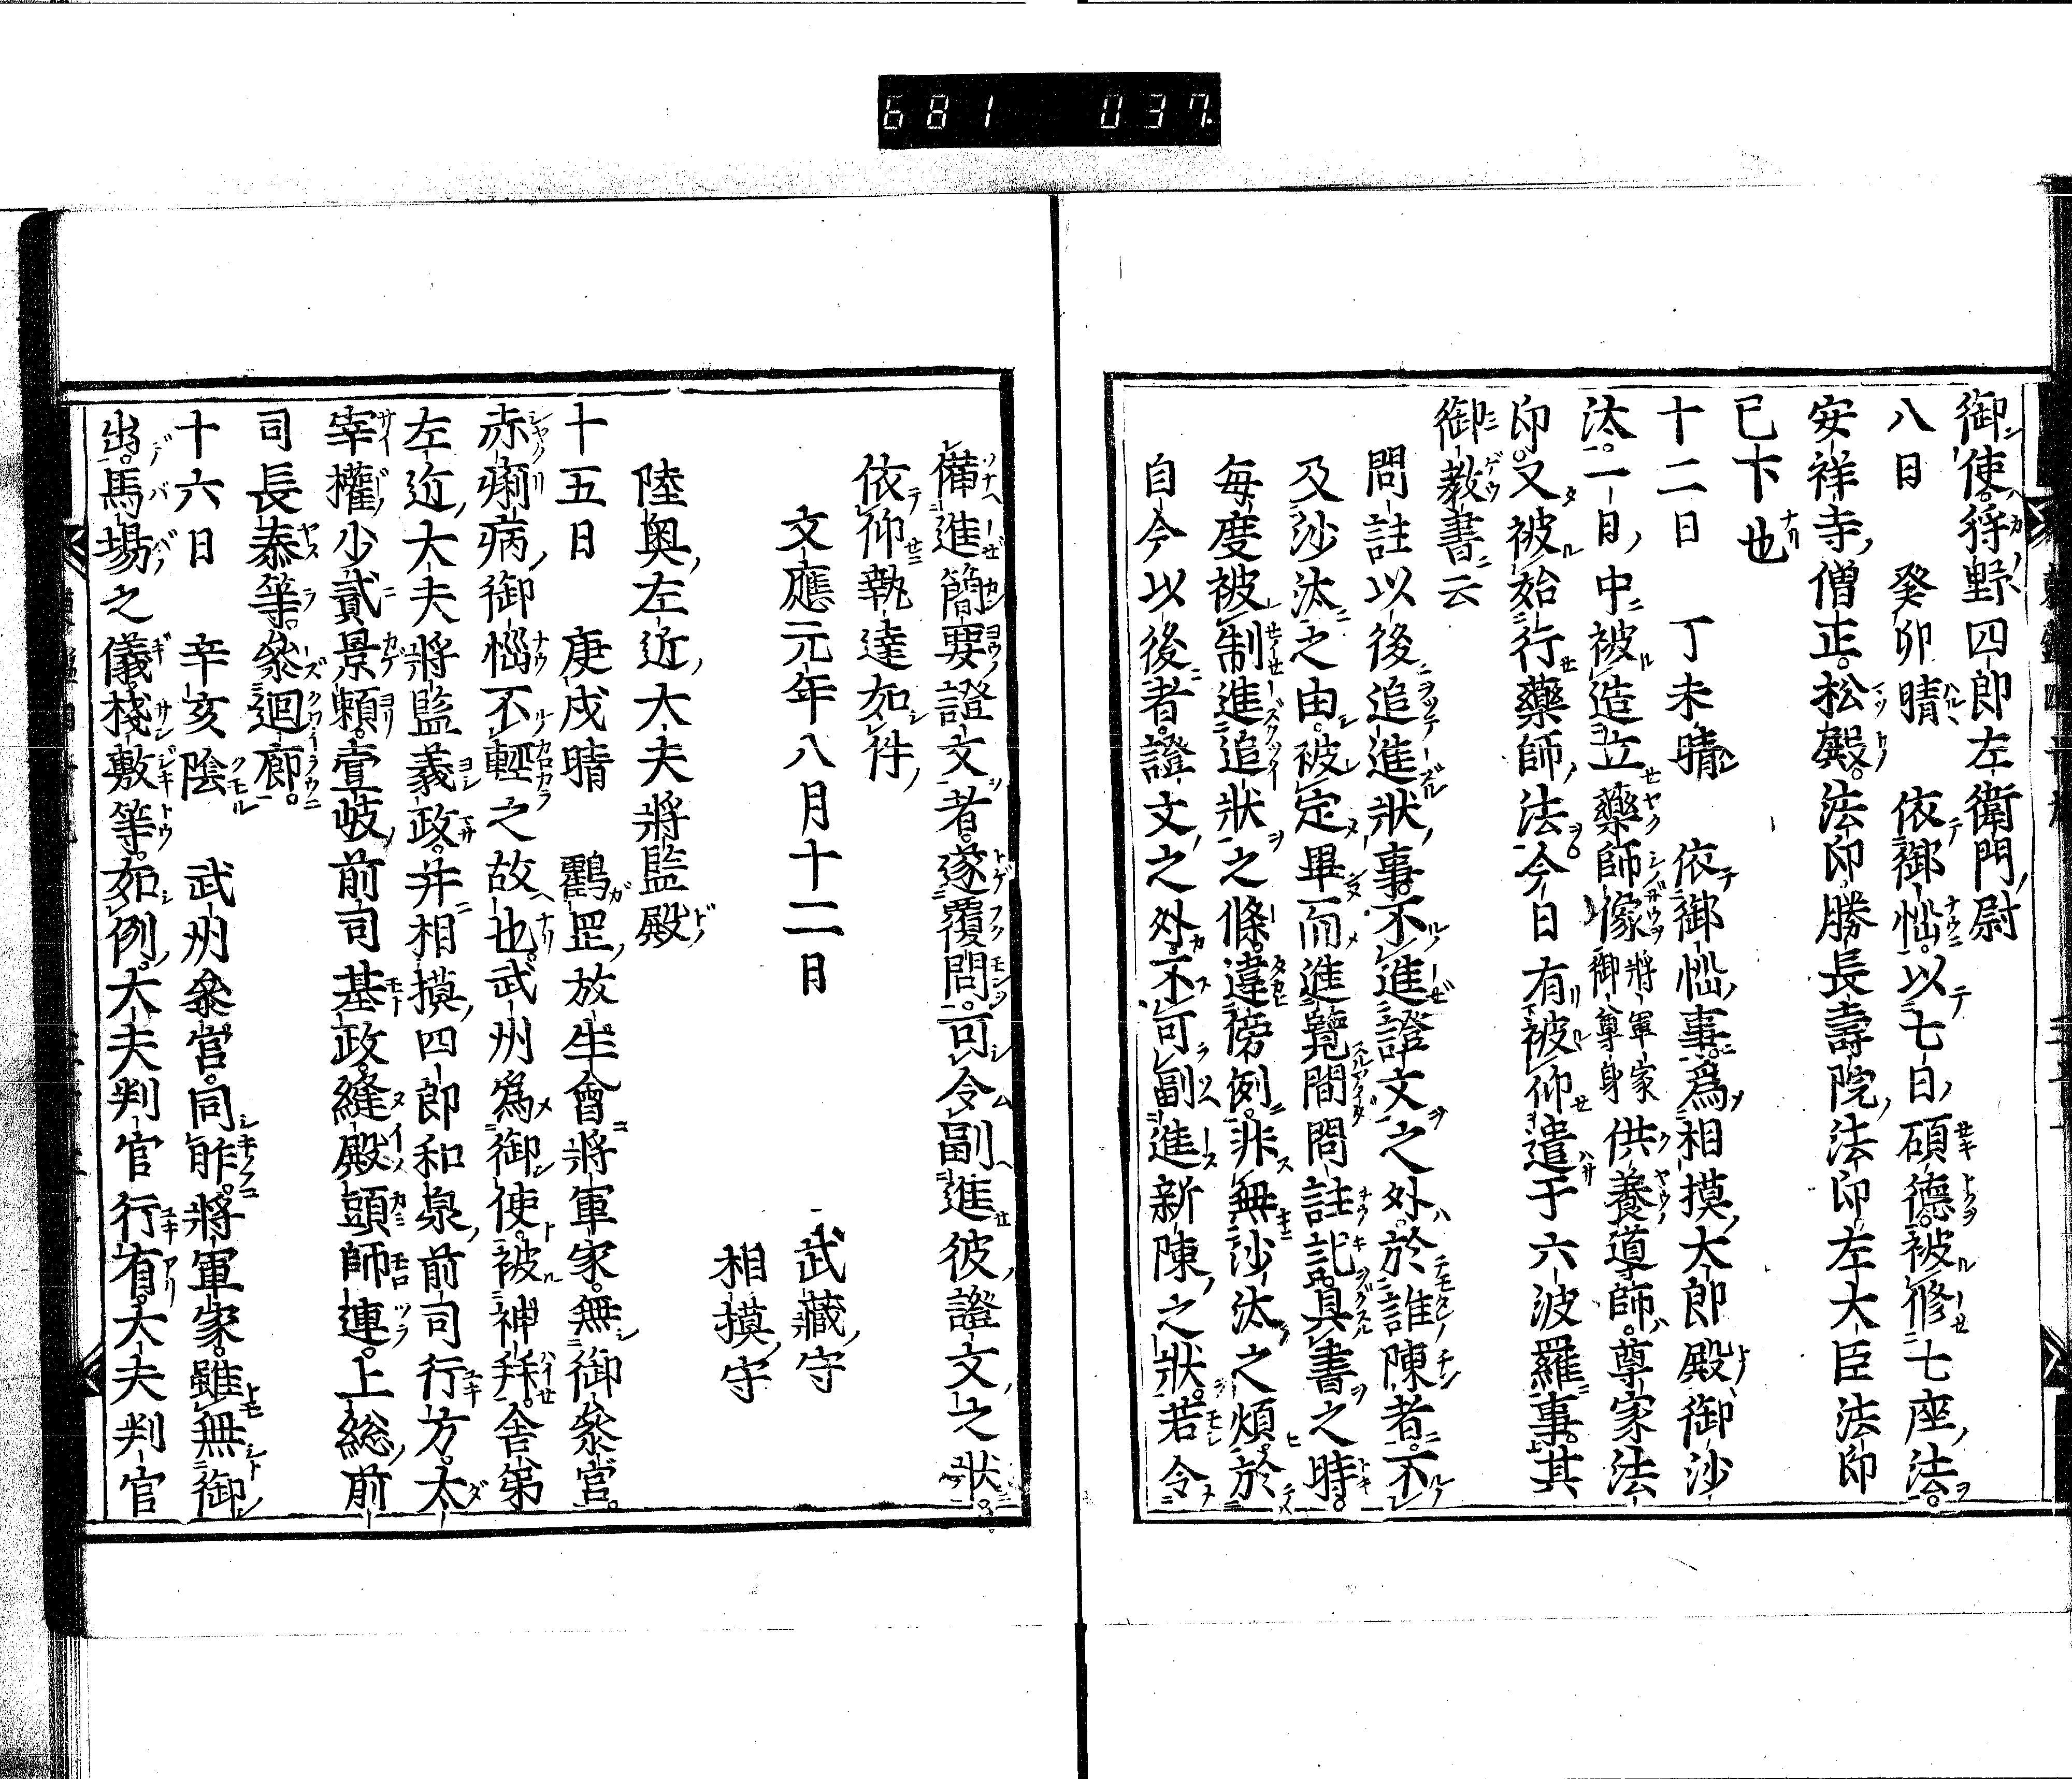 681 037
御使狩野四郎左衛門尉
八日 癸卯晴 依御惱以七日碩德被修七座法
安祥寺僧正松殿法印勝長壽院法印左大臣法印
已下也
十二日 丁未晴 依御惱事爲相摸太郎殿御沙
汰一日中被造立藥師像將軍家御尊身供養道師尊家法
印又被始行藥師法今日有被仰遣于六波羅事其
御教書云
問註以後追進狀事不進證文之外於誰陳者不
及沙汰之由被定畢而進覽間問註記具書之時
每度被制進追狀之條違傍例非無沙汰之煩於
自今以後者證文之外不可副進新陳之狀若令
備進簡要證文者遂覆問可令副進彼證文之狀
依仰執達如件
文應元年八月十二日
武藏守
相摸守
陸奧左近大夫將監殿
十五日 庚戌晴 鸛罡放生會將軍家無御參宮
赤痢病御惱不輕之故也武州爲御使被神拜舍弟
左近大夫將監義政并相摸四郎和泉前司行方太
宰權少貳景賴壹岐前司基政縫殿頭師連上総前
司長泰等參迴廊
十六日 辛亥陰 武州參宮同昨將軍家雖無御
出馬場之儀棧敷等如例大夫判官行有大夫判官